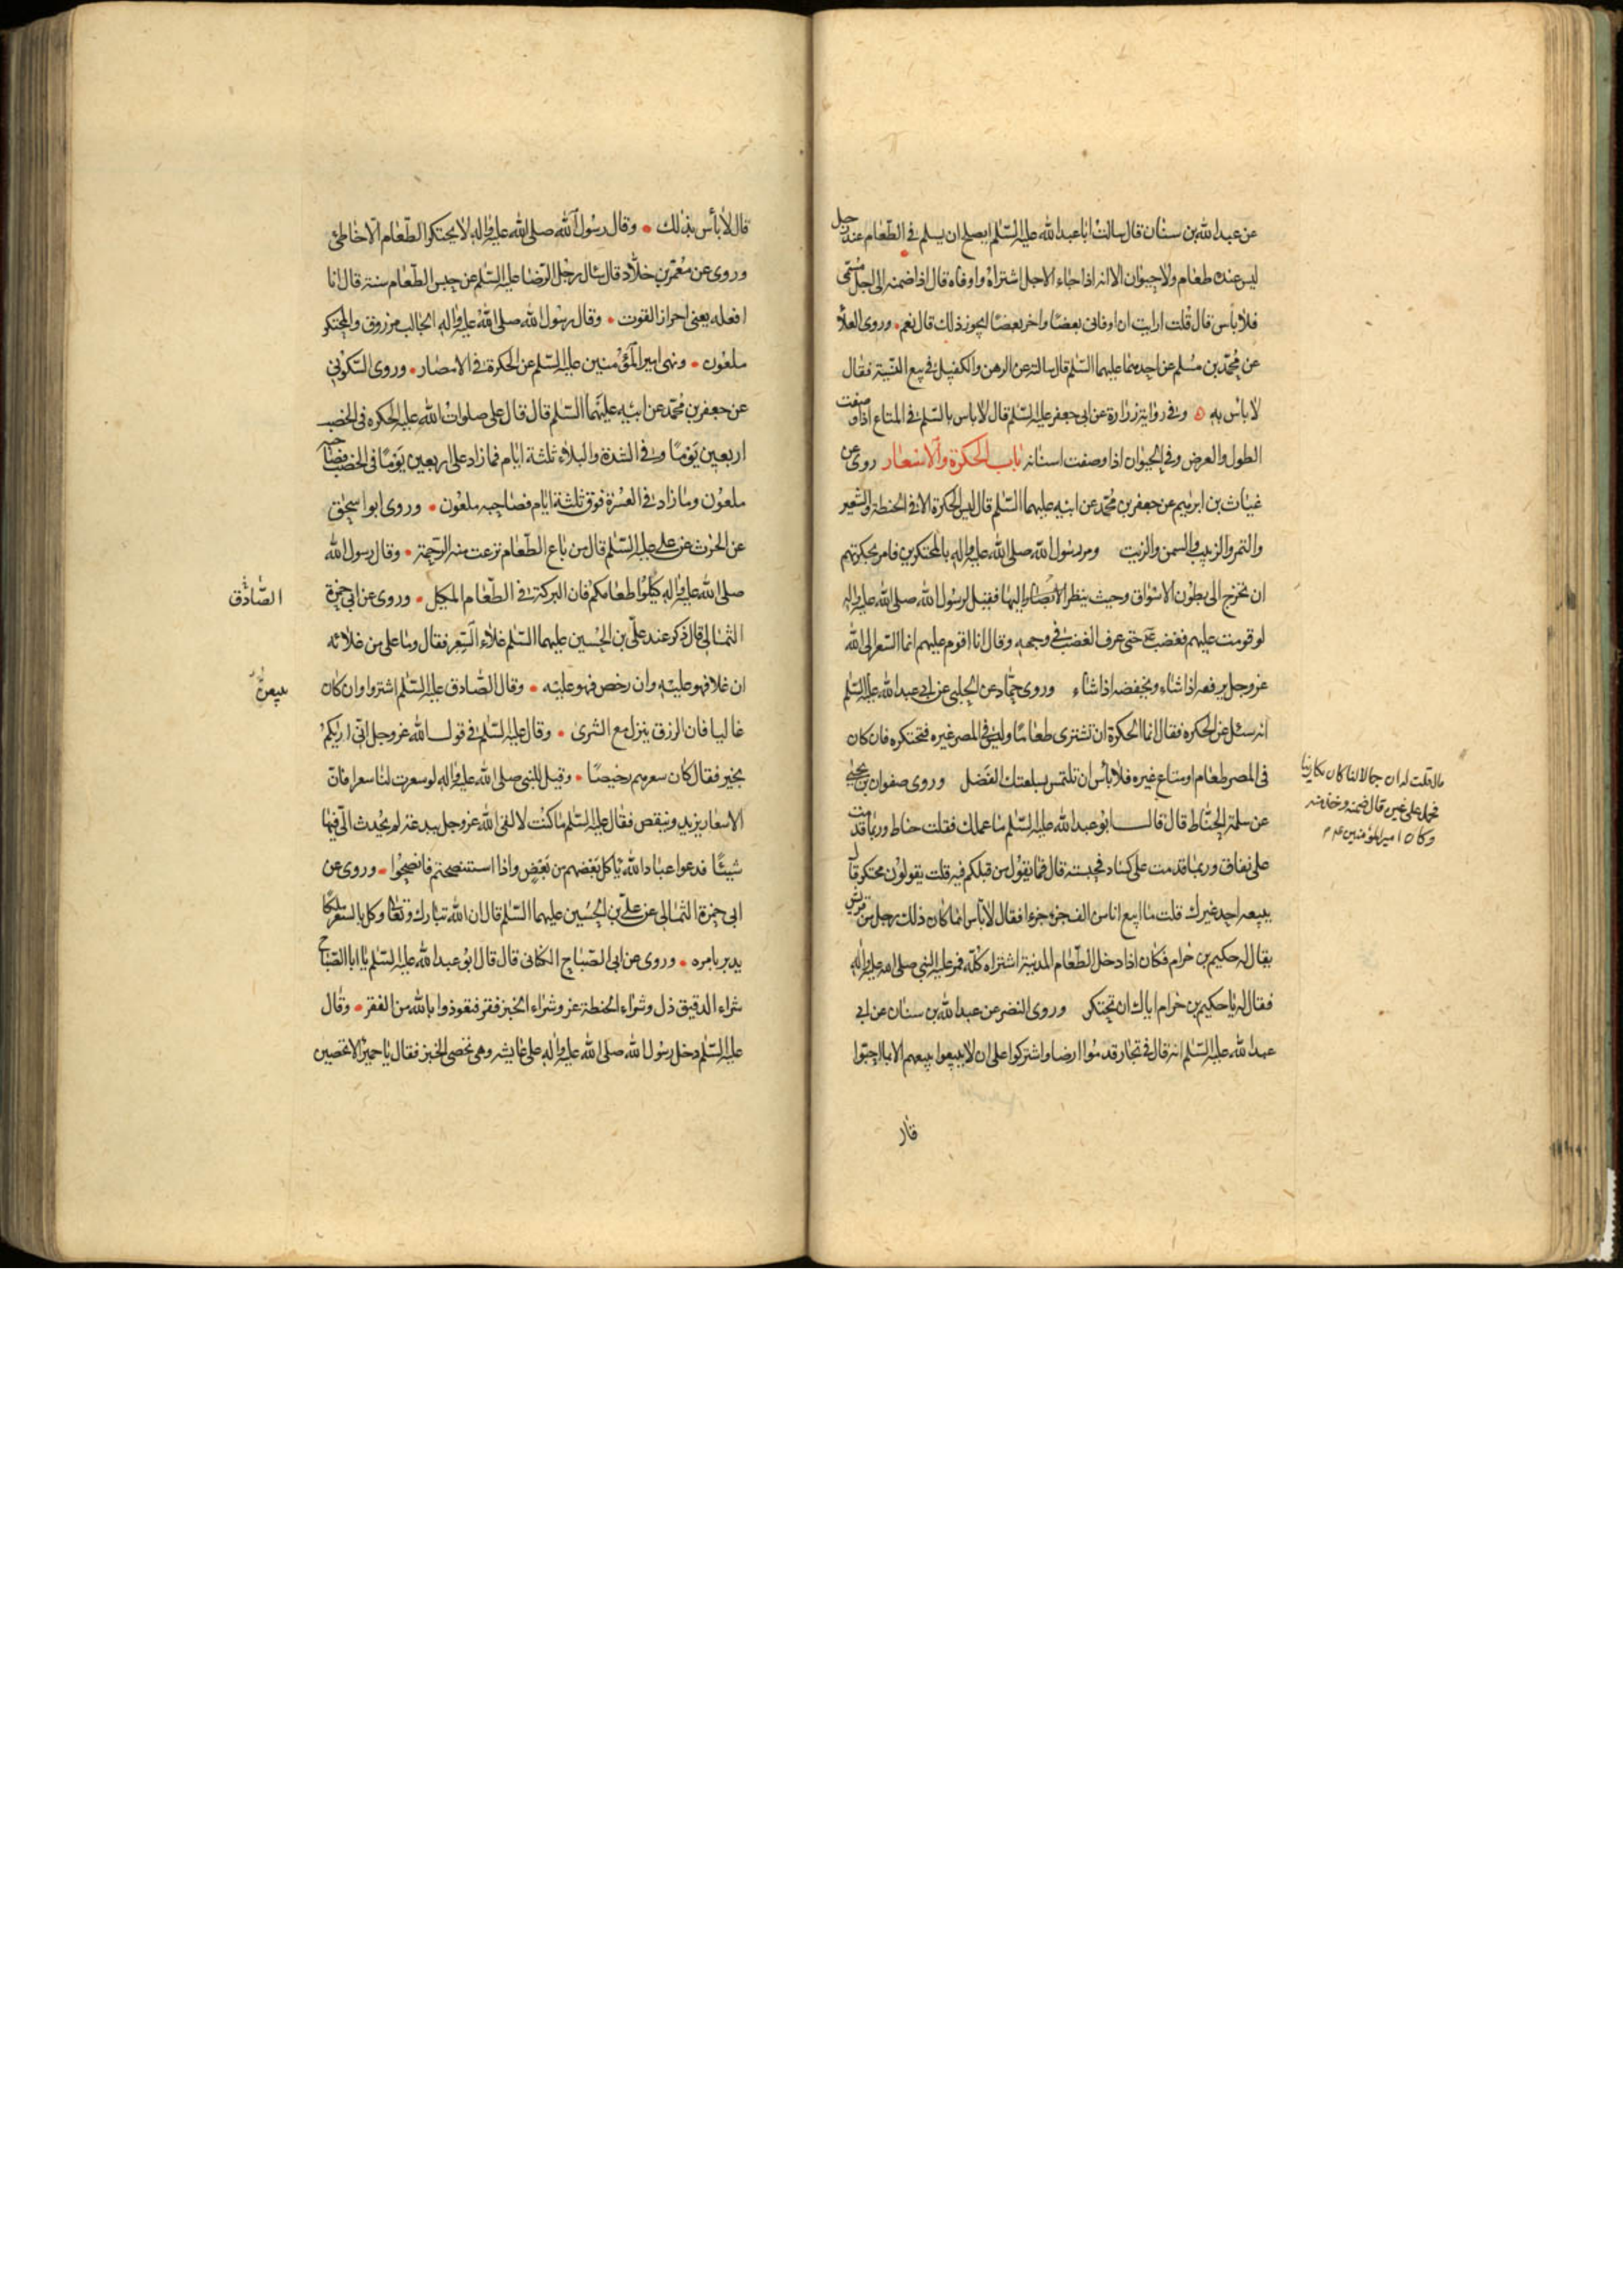 عن عبدالله بن سنان قال سالت ابا عبدالله عليه السّلم ايصلح ان يسلم فى الطّعام عند رجل
ليس عنده طعام ولا حيوان الا انه اذا جاء الاجل اشتراه واوفاه قال اذا ضمنه الى اجل مسمّى
فلا باس قال قلت ارايت ان اوفانى بعضًا واخر بعضًا ايجوز ذلك قال نعم وروى العلاء
عن محمّد بن مسلم عن احدهما عليهما السّلم قال سالته عن الرهن والكفيل فى بيع النّسية فقال
لا باس به وفى رواية زرارة عن ابى جعفر عليه السّلم قال لا باس بالسّلم فى المتاع اذا وصفت
الطول والعرض وفى الحيوان اذا وصفت اسنانه باب الحكرة والاسعار روى عن
غياث بن ابرهيم عن جعفر بن محمّد عن ابيه عليهما السّلم قال ليس الحكرة الا فى الحنطة والشّعير
والتمر والزبيب والسمن والزيت ومر رسول الله صلى الله عليه واله بالمحتكرين فامر بحكرتهم
ان تخرج الى بطون الاسواق وحيث ينظر الابصار اليها فقيل لرسول الله صلى الله عليه واله
لو قومت عليهم فغضب ع حتى عرف الغضب فى وجهه وقال انا اقوم عليهم انما السّعر الى الله
عز وجل يرفعه اذا شاء ويخفضه اذا شاء وروى حمّاد عن الحلبى عن ابى عبدالله عليه السّلم
انه سئل عن الحكره فقال انما الحكرة ان تشترى طعامًا وليس فى المصر غيره فتحتكره فان كان
فى المصر طعام او متاع غيره فلا باس ان تلتمس بسلعتك الفضل وروى صفوان بن يحيى
عن سلمة الحنّاط قال قال ابو عبدالله عليه السّلم ما عملك فقلت حناط وربما قدمت
على نفاق وربما قدمت على كساد فحبسته قال فما يقول من قبلكم فيه قلت يقولون محتكر قال
يبيعه احد غيرك قلت ما ابيع انا من الف جزو جزءا فقال لا باس انما كان ذلك رجل من قريش
يقال له حكيم بن حزام فكان اذا دخل الطّعام المدينة اشتراه كلّه فمر عليه النبى صلى الله عليه واله
فقال له يا حكيم بن حزام اياك ان تحتكر وروى النضر عن عبدالله بن سنان عن ابى
عبدالله عليه السّلم انه قال فى تجار قدموا ارضا واشتركوا على ان لا يبيعوا بيعهم الا بما احبّوا
قال
قلت له ان جمالا لنا كان يكارينا
فحمل على غيره قال ضمنه وخذ منه
وكان امير المؤمنين
قال لا باس بذلك وقال رسول الله صلى الله عليه واله لا يحتكر الطّعام الا خاطئ
وروى عن معمّر بن خلّاد قال سال رجل الرّضا عليه السّلم عن حبس الطّعام سنة قال انا
افعله يعنى احراز القوت وقال رسول الله صلى الله عليه واله الجالب مرزوق والمحتكر
ملعون ونهى امير المؤمنين عليه السّلم عن الحكرة فى الامصار وروى السّكونى
عن جعفر بن محمّد عن ابيه عليهما السّلم قال قال على صلوات الله عليه الحكره فى الخصب
اربعين يومًا وفى الشدة والبلاء ثلثة ايام فما زاد على اربعين يومًا فى الخصب فصاحبه
ملعون وما زاد فى العسرة فوق ثلثة ايام فصاحبه ملعون وروى ابو اسحق
عن الحرث عن على عليه السّلم قال من باع الطّعام نزعت منه الرّحمة وقال رسول الله
صلى الله عليه واله كيلوا طعامكم فان البركة فى الطّعام المكيل وروى عن ابى حمزة
الثمالى قال ذكر عند علىّ بن الحسين عليهما السّلم غلاء السّعر فقال وما على من غلائه
ان غلا فهو عليه وان رخص فهو عليه وقال الصّادق عليه السّلم اشتروا وان كان
غاليا فان الرزق ينزل مع الشرى وقال عليه السّلم فى قول الله عز وجل انّى اريكم
بخير فقال كان سعرهم رخيصًا وقيل للنبى صلى الله عليه واله لو سعرت لنا سعرا فان
الاسعار يزيد وينقص فقال عليه السّلم ما كنت لالقى الله عز وجل ببدعة لم يحدث الىّ فيها
شيئًا فدعوا عباد الله ياكل بعضهم من بعض واذا استنصحتم فانصحوا وروى عن
ابى حمزة الثمالى عن علىّ بن الحسين عليهما السّلم قال ان الله تبارك وتعالى وكل بالسّعر ملكًا
يدبر بامره وروى عن ابى الصّباح الكنانى قال قال ابو عبدالله عليه السّلم يا ابا الصّباح
شراء الدقيق ذل وشراء الحنطة عز وشراء الخبز فقر فتعوذوا بالله من الفقر وقال
عليه السّلم دخل رسول الله صلى الله عليه واله على عايشه وهى تحصى الخبز فقال يا حميرا لا تحصين
الصّادق